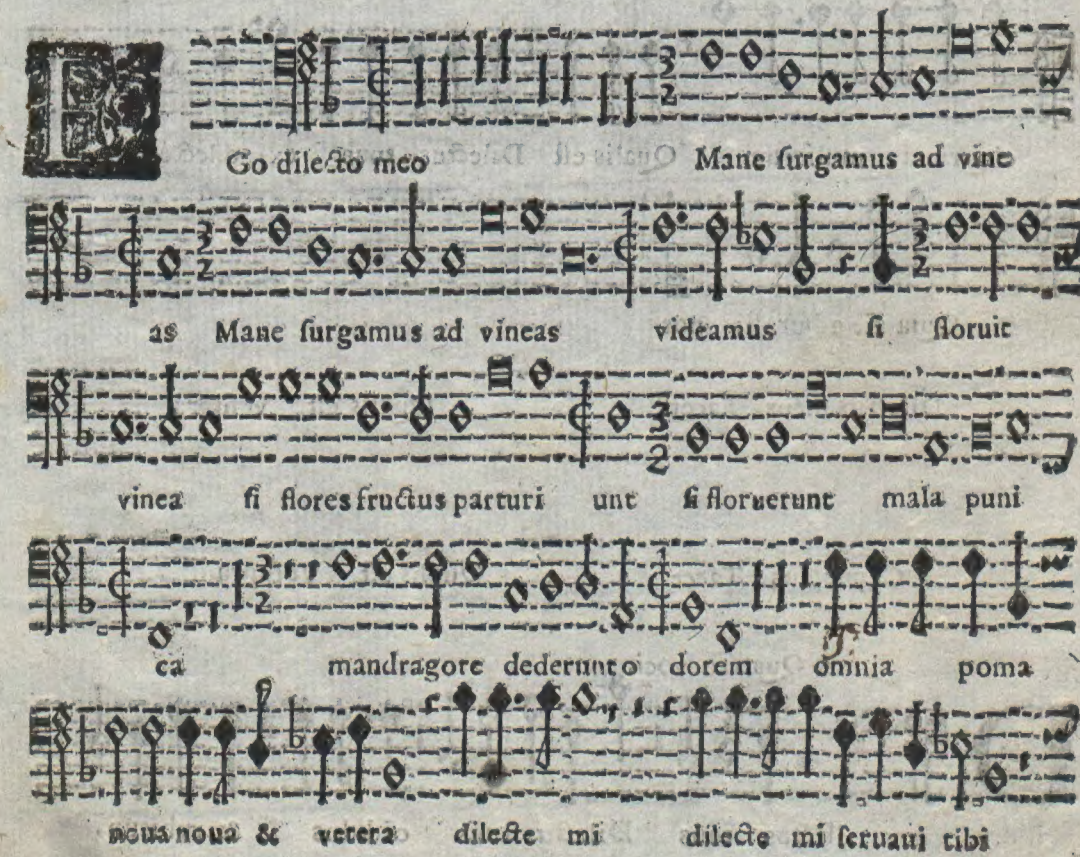 EGo dilecto meo Mane surgamus ad vine
as Mane surgamus ad vineas videamus si floruit
vinea si flores fructus parturi unt si floruerunt mala puni
ca mandragore dederunt o dorem omnia poma
noua noua & vetera dilecte mi dilecte mi seruaui tibi